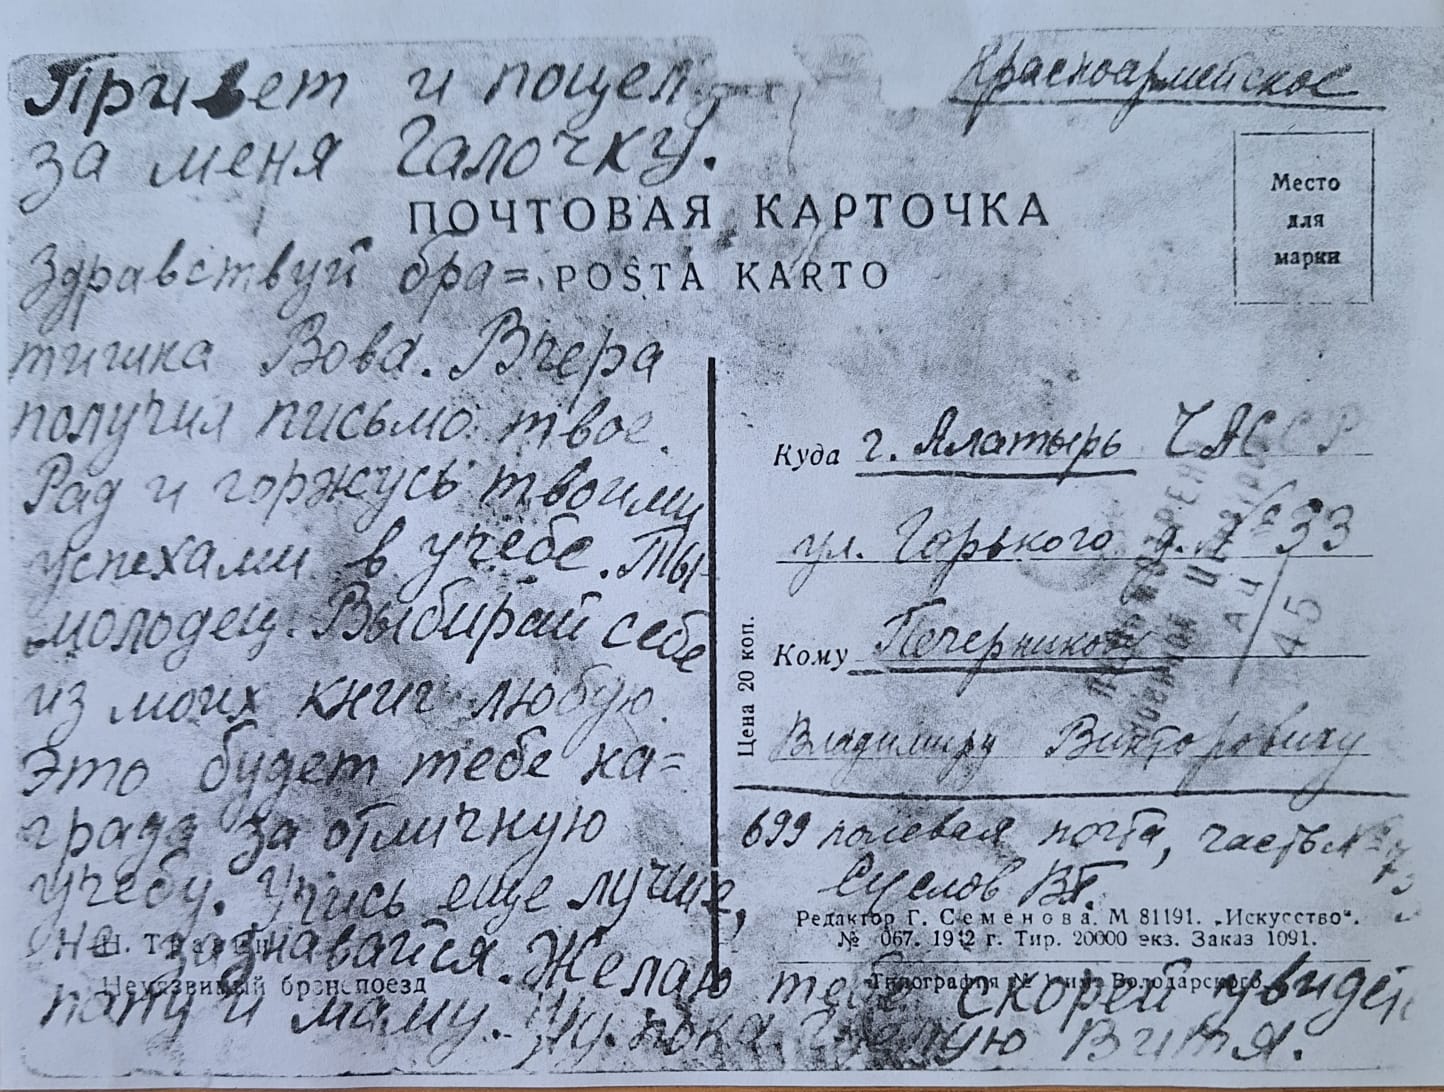 Привет и поцел
за меня Галочку.
Красноармейское
Место
для
марки
ПОЧТОВАЯ КАРТОЧКА
POŜTA KARTO
Здравствуй бра=
тишка Вова. Вчера
получил письмо твое.
Рад и горжусь твоими
успехами в учёбе. Ты
молодец. Выбирай себе
из моих книг любую.
Это будет тебе на=
града за отличную
учебу. Учись еще лучше,
не зазнавайся. Желаю тебе скорей увидеть
папу и маму. Ну, пока. Целую Витя.
Куда г. Алатырь ЧАССР
ул. Горького д. № 33
45
Кому Печерникову
Владимиру Викторовичу
Цена 20 коп.
699 полевая почта, часть №
Суслов В.
Редактор Г. Семенова. М 81191. „Искусство“.
№ 067. 1942 г. Тир. 20000 экз. Заказ 1091.
Типография № им. Володарского.
Неуязвимый бронепоезд